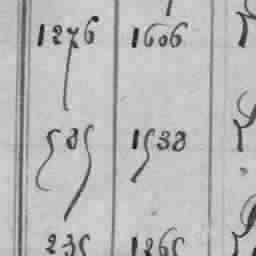 1276 1606
585 1538
235 1265